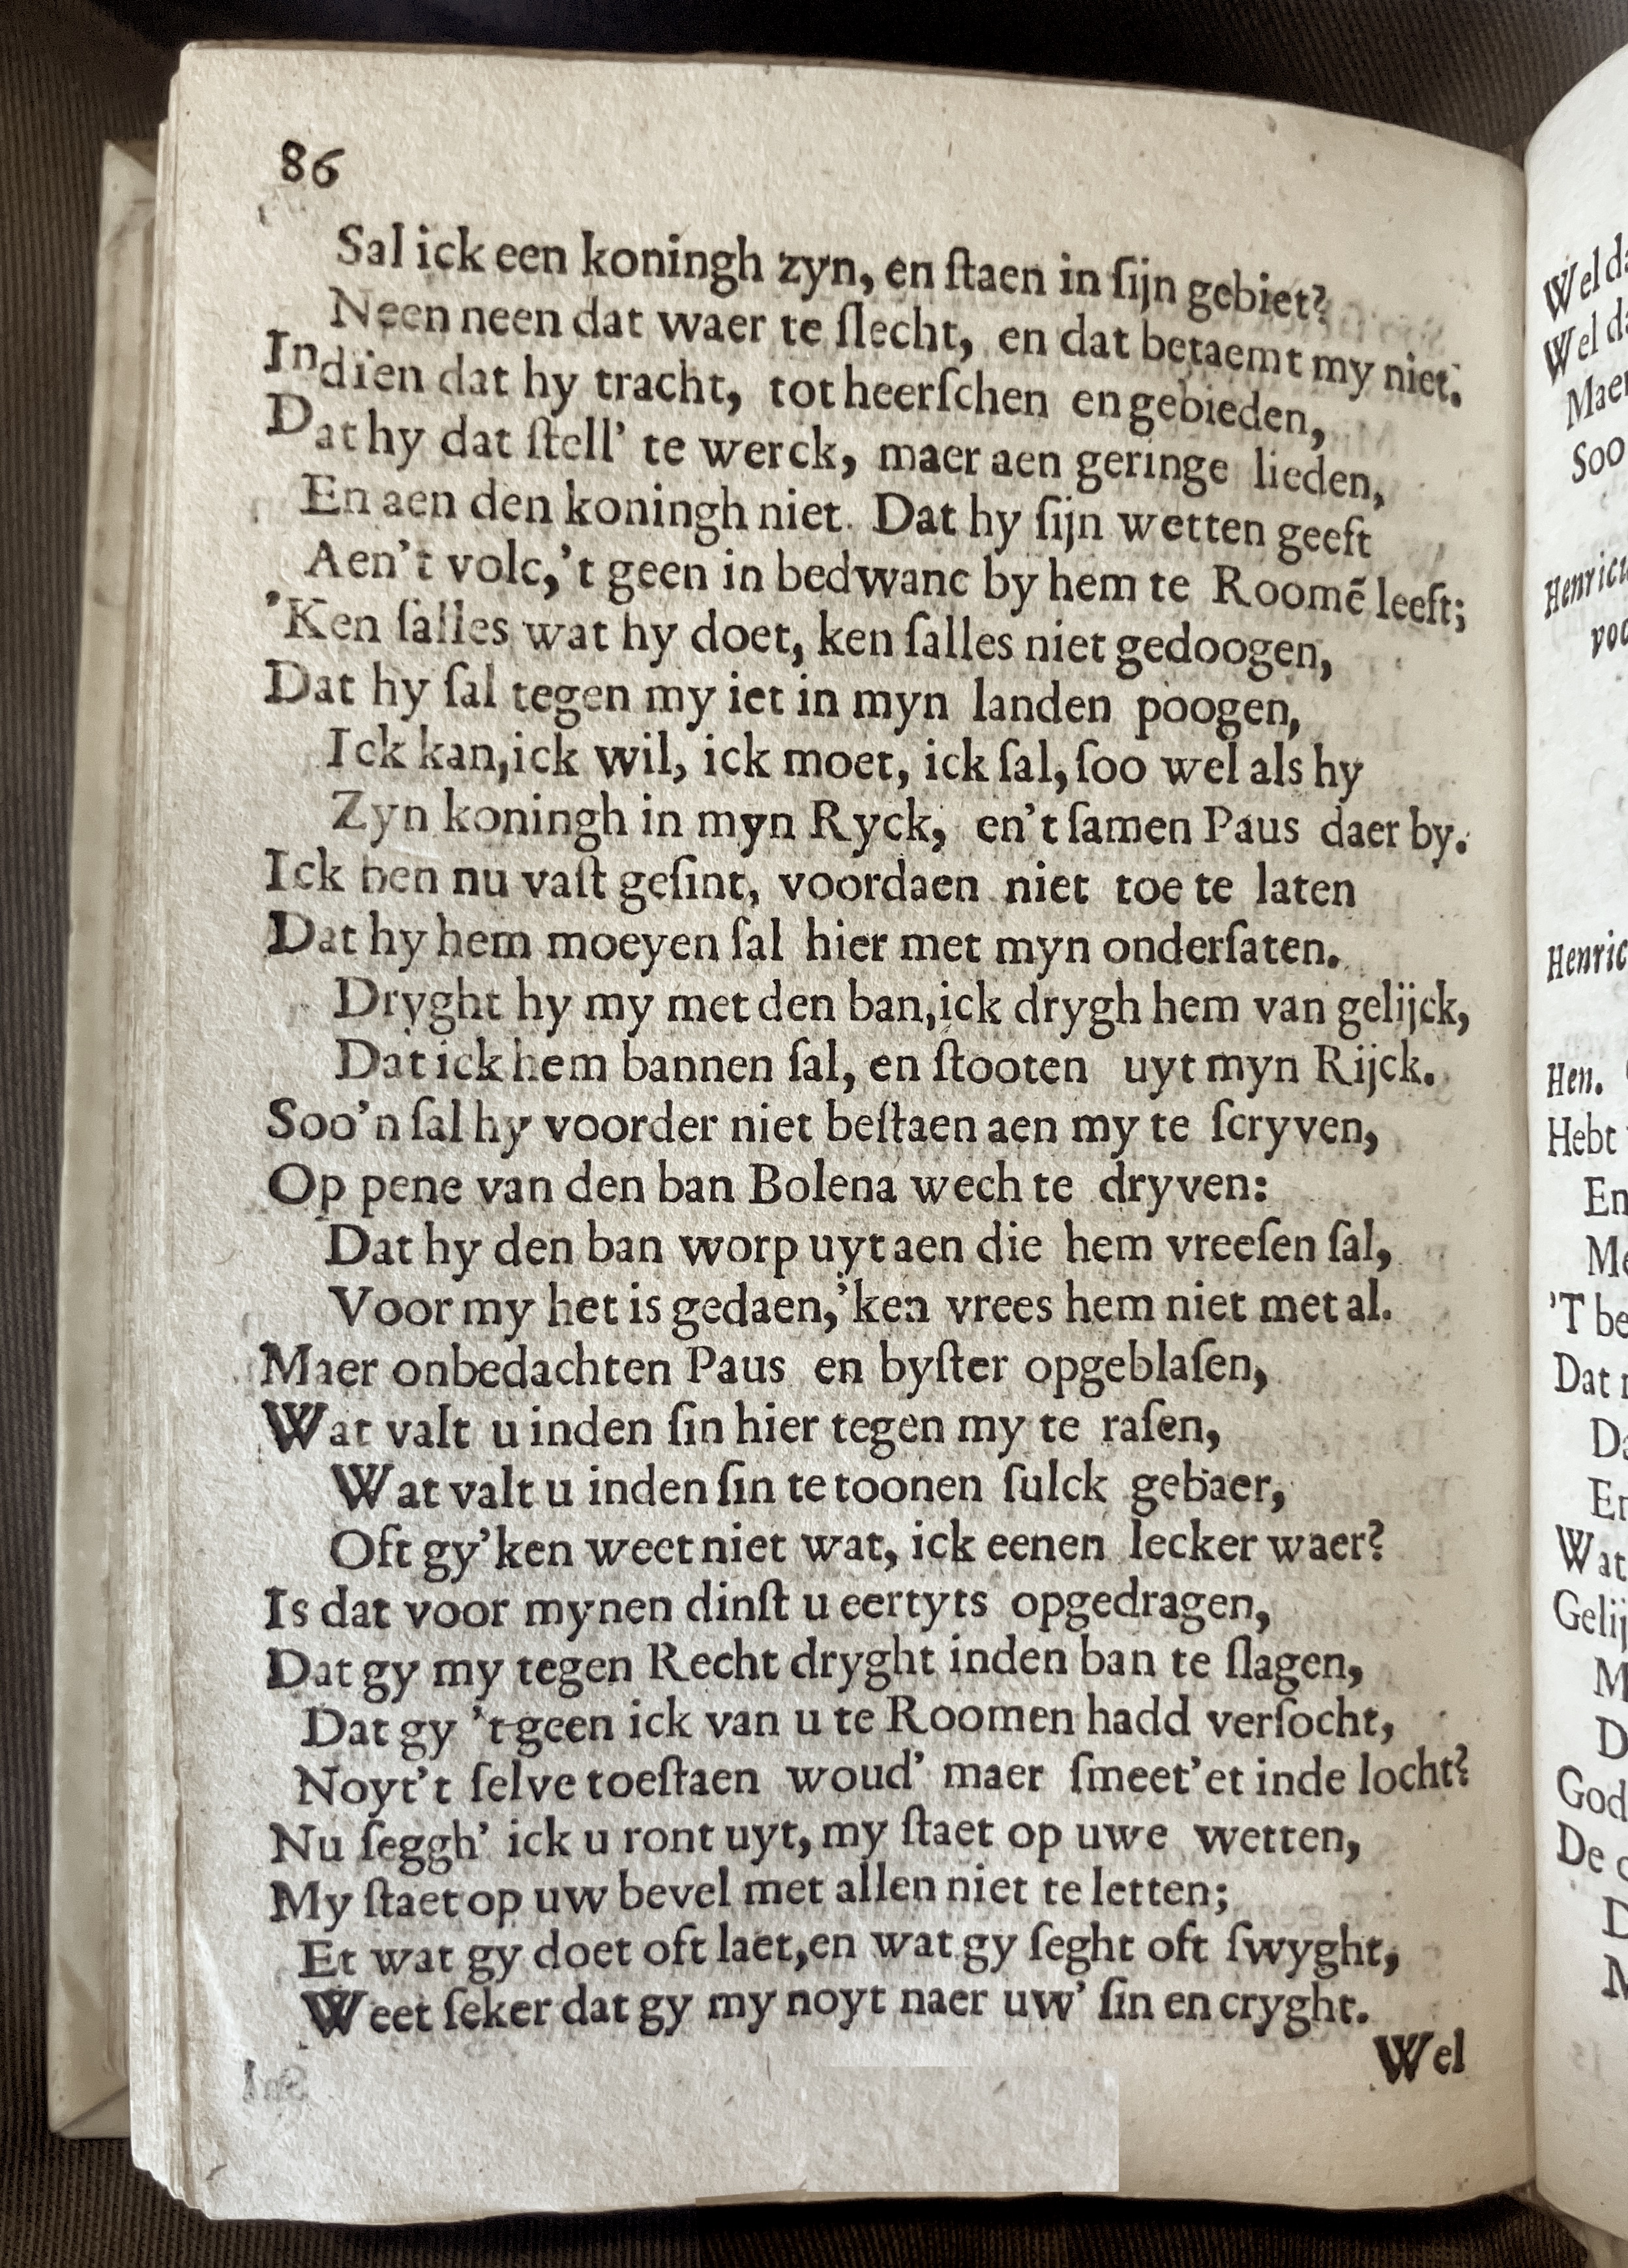 86
Sal ick een koningh zyn, en ſtaen in ſijn gebiet?
Neen neen dat waer te ſlecht, en dat betaemt my niet.
Indien dat hy tracht, tot heerſchen en gebieden,
Dat hy dat ſtell’ te werck, maer aen geringe lieden,
En aen den koningh niet. Dat hy ſijn wetten geeft
Aen’t volc,’t geen in bedwanc by hem te Roomē leeft;
’Ken ſalles wat hy doet, ken ſalles niet gedoogen,
Dat hy ſal tegen my iet in myn landen poogen,
Ick kan,ick wil, ick moet, ick ſal, ſoo wel als hy
Zyn koningh in myn Ryck, en’t ſamen Paus daer by.
Ick ben nu vaſt geſint, voordaen niet toe te laten
Dat hy hem moeyen ſal hier met myn onderſaten.
Dryght hy my met den ban,ick drygh hem van gelijck,
Dat ick hem bannen ſal, en ſtooten uyt myn Rijck.
Soo’n ſal hy voorder niet beſtaen aen my te ſcryven,
Op pene van den ban Bolena wech te dryven:
Dat hy den ban worp uyt aen die hem vreeſen ſal,
Voor my het is gedaen,’ken vrees hem niet met al.
Maer onbedachten Paus en byſter opgeblaſen,
Wat valt u inden ſin hier tegen my te raſen,
Wat valt u inden ſin te toonen ſulck gebaer,
Oft gy’ken weet niet wat, ick eenen lecker waer?
Is dat voor mynen dinſt u eertyts opgedragen,
Dat gy my tegen Recht dryght inden ban te ſlagen,
Dat gy ’t geen ick van u te Roomen hadd verſocht,
Noyt’t ſelve toeſtaen woud’ maer ſmeet’et inde locht?
Nu ſeggh’ ick u ront uyt, my ſtaet op uwe wetten,
My ſtaet op uw bevel met allen niet te letten;
Et wat gy doet oft laet,en wat gy ſeght oft ſwyght,
Weet ſeker dat gy my noyt naer uw’ ſin en cryght.
Wel
Wel
Wel
Maer
Soo
Henric
voo
Henric
Hen.
Hebt
En
'T be
Dat
Wat
Gelij
God
De